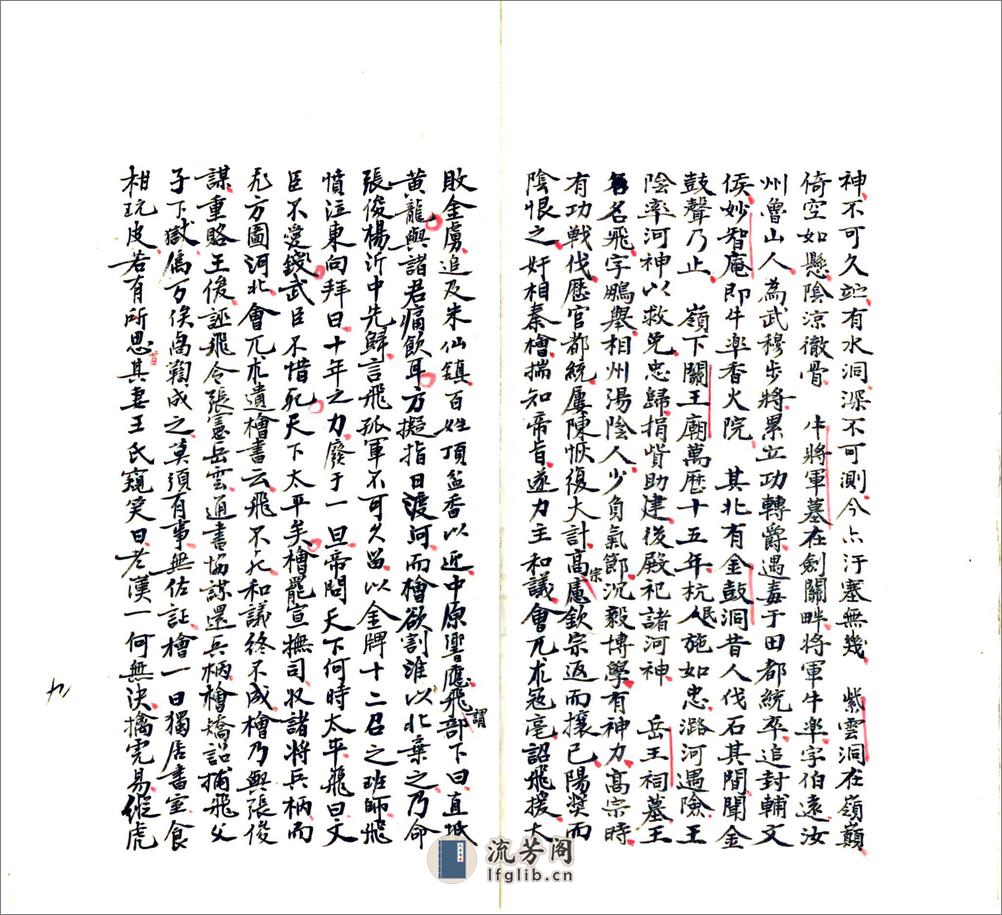 神不可久竚有水洞深不可測今亦汙塞無幾　紫雲洞在嶺巔
倚空如懸陰涼徹骨　牛將軍墓在劍關畔將軍牛皋字伯遠汝
州魯山人為武穆步將累立功轉爵遇毒于田都統卒追封輔文
侯妙智庵即牛皋香火院　其北有金鼓洞昔人伐石其間聞金
鼓聲乃止　嶺下關王廟萬歷十五年杭人施如忠潞河遇險王
陰率河神以救免忠歸捐貲助建後殿祀諸河神　岳王祠墓王
名飛字鵬舉相州湯陰人少負氣節沉毅博學有神力高宗時
有功戰伐歷官都統屢陳恢復大計高宗慮欽宗返而攘已陽獎而
陰恨之奸相秦檜揣知帝旨遂力主和議會兀朮冦亳詔飛援大
敗金虜追及朱仙鎮百姓頂盆香以迎中原響應飛謂部下曰直抵
黃龍與諸君痛飲耳方擬指日渡河而檜欲割淮以北棄之乃命
張俊楊沂中先歸言飛孤軍不可久留以金牌十二召之班師飛
憤泣東向拜曰十年之力廢于一旦帝問天下何時太平飛曰文
臣不愛錢武臣不惜死天下太平矣檜罷宣撫司收諸將兵柄而
飛方圖河北會兀朮遺檜書云飛不死和議終不成檜乃與張俊
謀重賂王俊誣飛令張憲岳雲通書協謀還兵柄檜矯詔捕飛父
子下獄傌万俟卨鞫成之莫須有事無佐証檜一日獨居書室食
柑玩皮若有所思其妻王氏窺笑曰老漢一何無決擒虎易縱虎
流芳阁
lfglib.cn